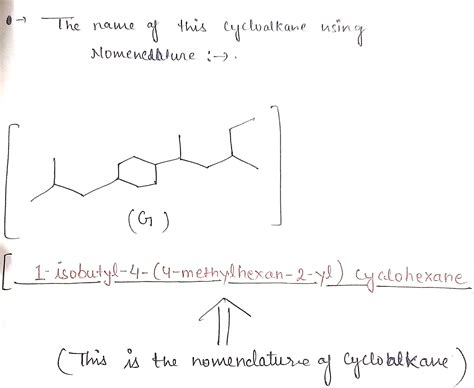 The name of this cycloalkane using
Nomenclature :→.
(G)
1-isobutyl-4-(4-methylhexan-2-yl) cyclohexane
(This is the nomenclature of cycloalkane)